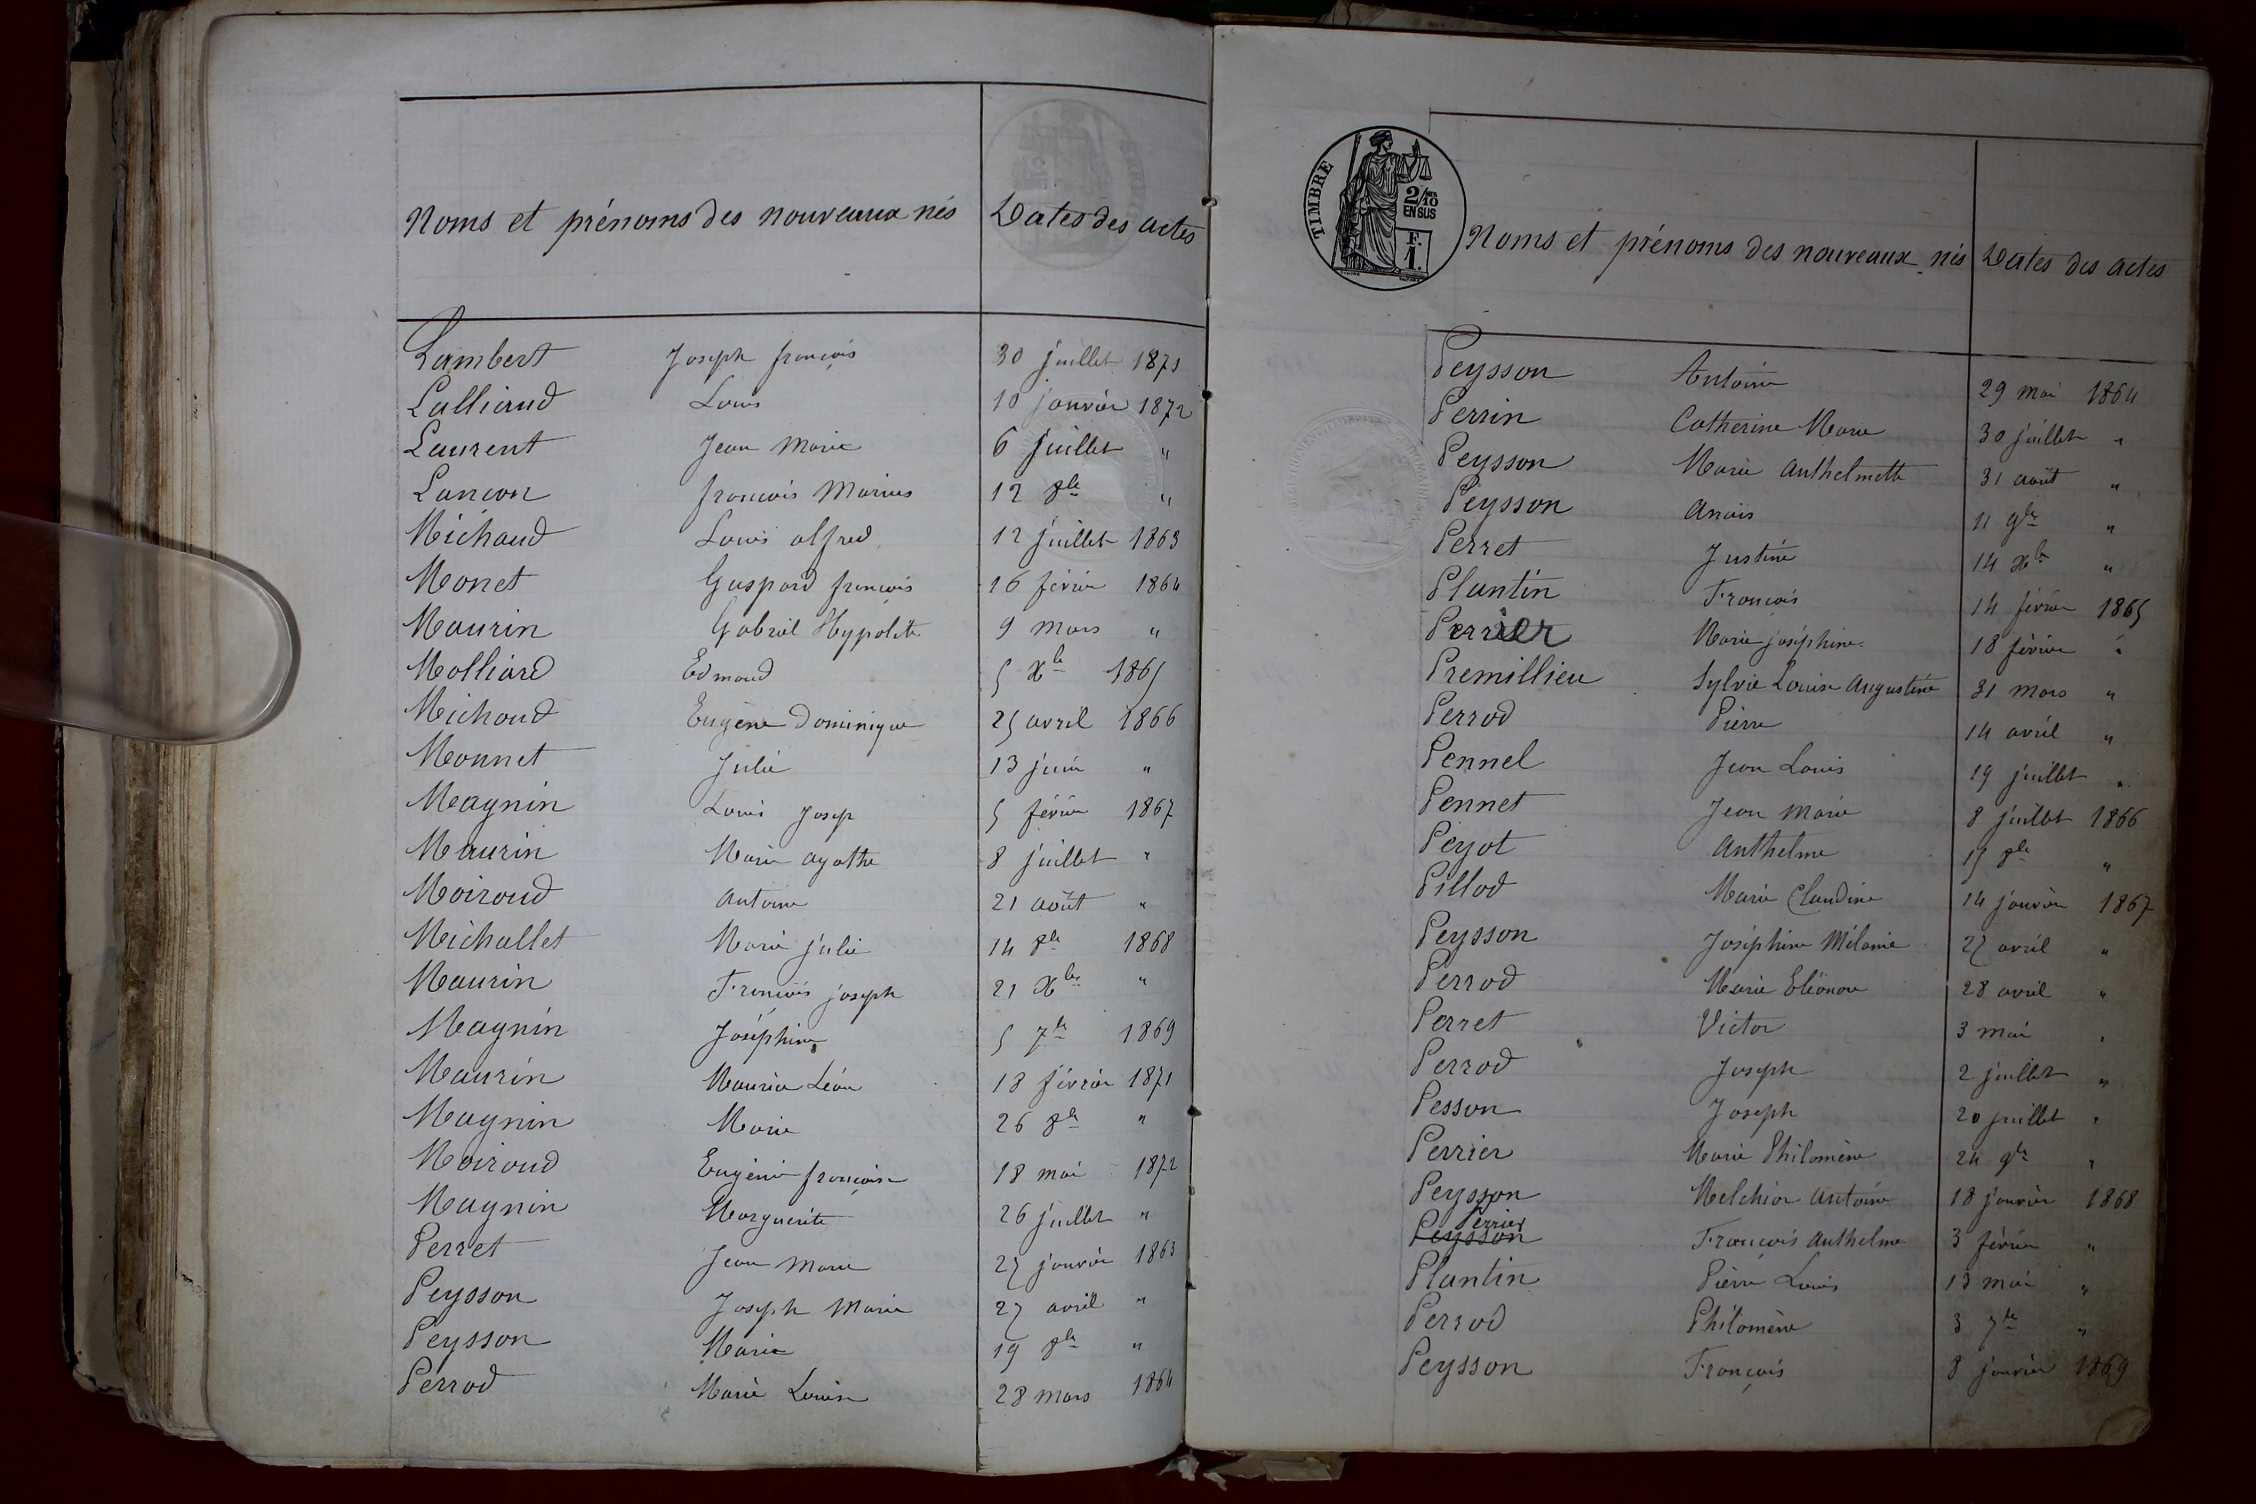 Noms et prénoms des nouveaux nés Dates des actes
Lambert Joseph françois 30 juillet 1871
Lalliaud Louis 10 janvier 1872
Laurent Jean Marie 6 juillet "
Lançon françois Marius 12 8bre "
Michaud Louis alfred 12 juillet 1863
Monet Gaspard françois 16 février 1864
Maurin Gabriel Hyppolite 9 mars "
Molliard Edmond 5 Xbre 1865
Michaud Eugène Dominique 25 avril 1866
Monnet Julie 13 juin "
Magnin Louis Josep 5 février 1867
Maurin Marie agathe 8 juillet "
Moiroud antoine 21 août "
Michallet Marie julie 14 8bre 1868
Maurin François joseph 21 Xbre "
Magnin Joséphine 5 7bre 1869
Maurin Maurice Léon 18 février 1871
Magnin Marie 26 8bre "
Moiroud Eugénie françoise 18 mai 1872
Magnin Marguerite 26 juillet "
Perret Jean Marie 27 janvier 1863
Peysson Joseph Marie 27 avril "
Peysson Marie 19 8bre "
Perrod Marie Louise 28 mars 1864
TIMBRE
2/10 EN SUS
F. 1.
Noms et prénoms des nouveaux nés Dates des actes
Peysson Antoine 29 mai 1864
Perrin Catherine Marie 30 juillet "
Peysson Marie anthelmette 31 août "
Peysson anaïs 11 9bre "
Perret Justine 14 Xbre "
Plantin François 14 février 1865
Perrier Marie joséphine 18 février "
Premillieu Sylvie Louise Augustine 31 mars "
Perrod Pierre 14 avril "
Pennel Jean Louis 19 juillet "
Pennet Jean Marie 8 juillet 1866
Peyot anthelme 15 8bre "
Pillod Marie Claudine 14 janvier 1867
Peysson Joséphine Mélanie 27 avril "
Perrod Marie Eléonore 28 avril "
Perret Victor 3 mai "
Perrod Joseph 2 juillet "
Pesson Joseph 20 juillet "
Perrier Marie Philomène 24 9bre "
Peysson Melchior antoine 18 janvier 1868
Perrier
Peysson François anthelme 3 février "
Plantin Pierre Louis 13 mai "
Perrod Philomène 3 7bre "
Peysson François 8 janvier 1869